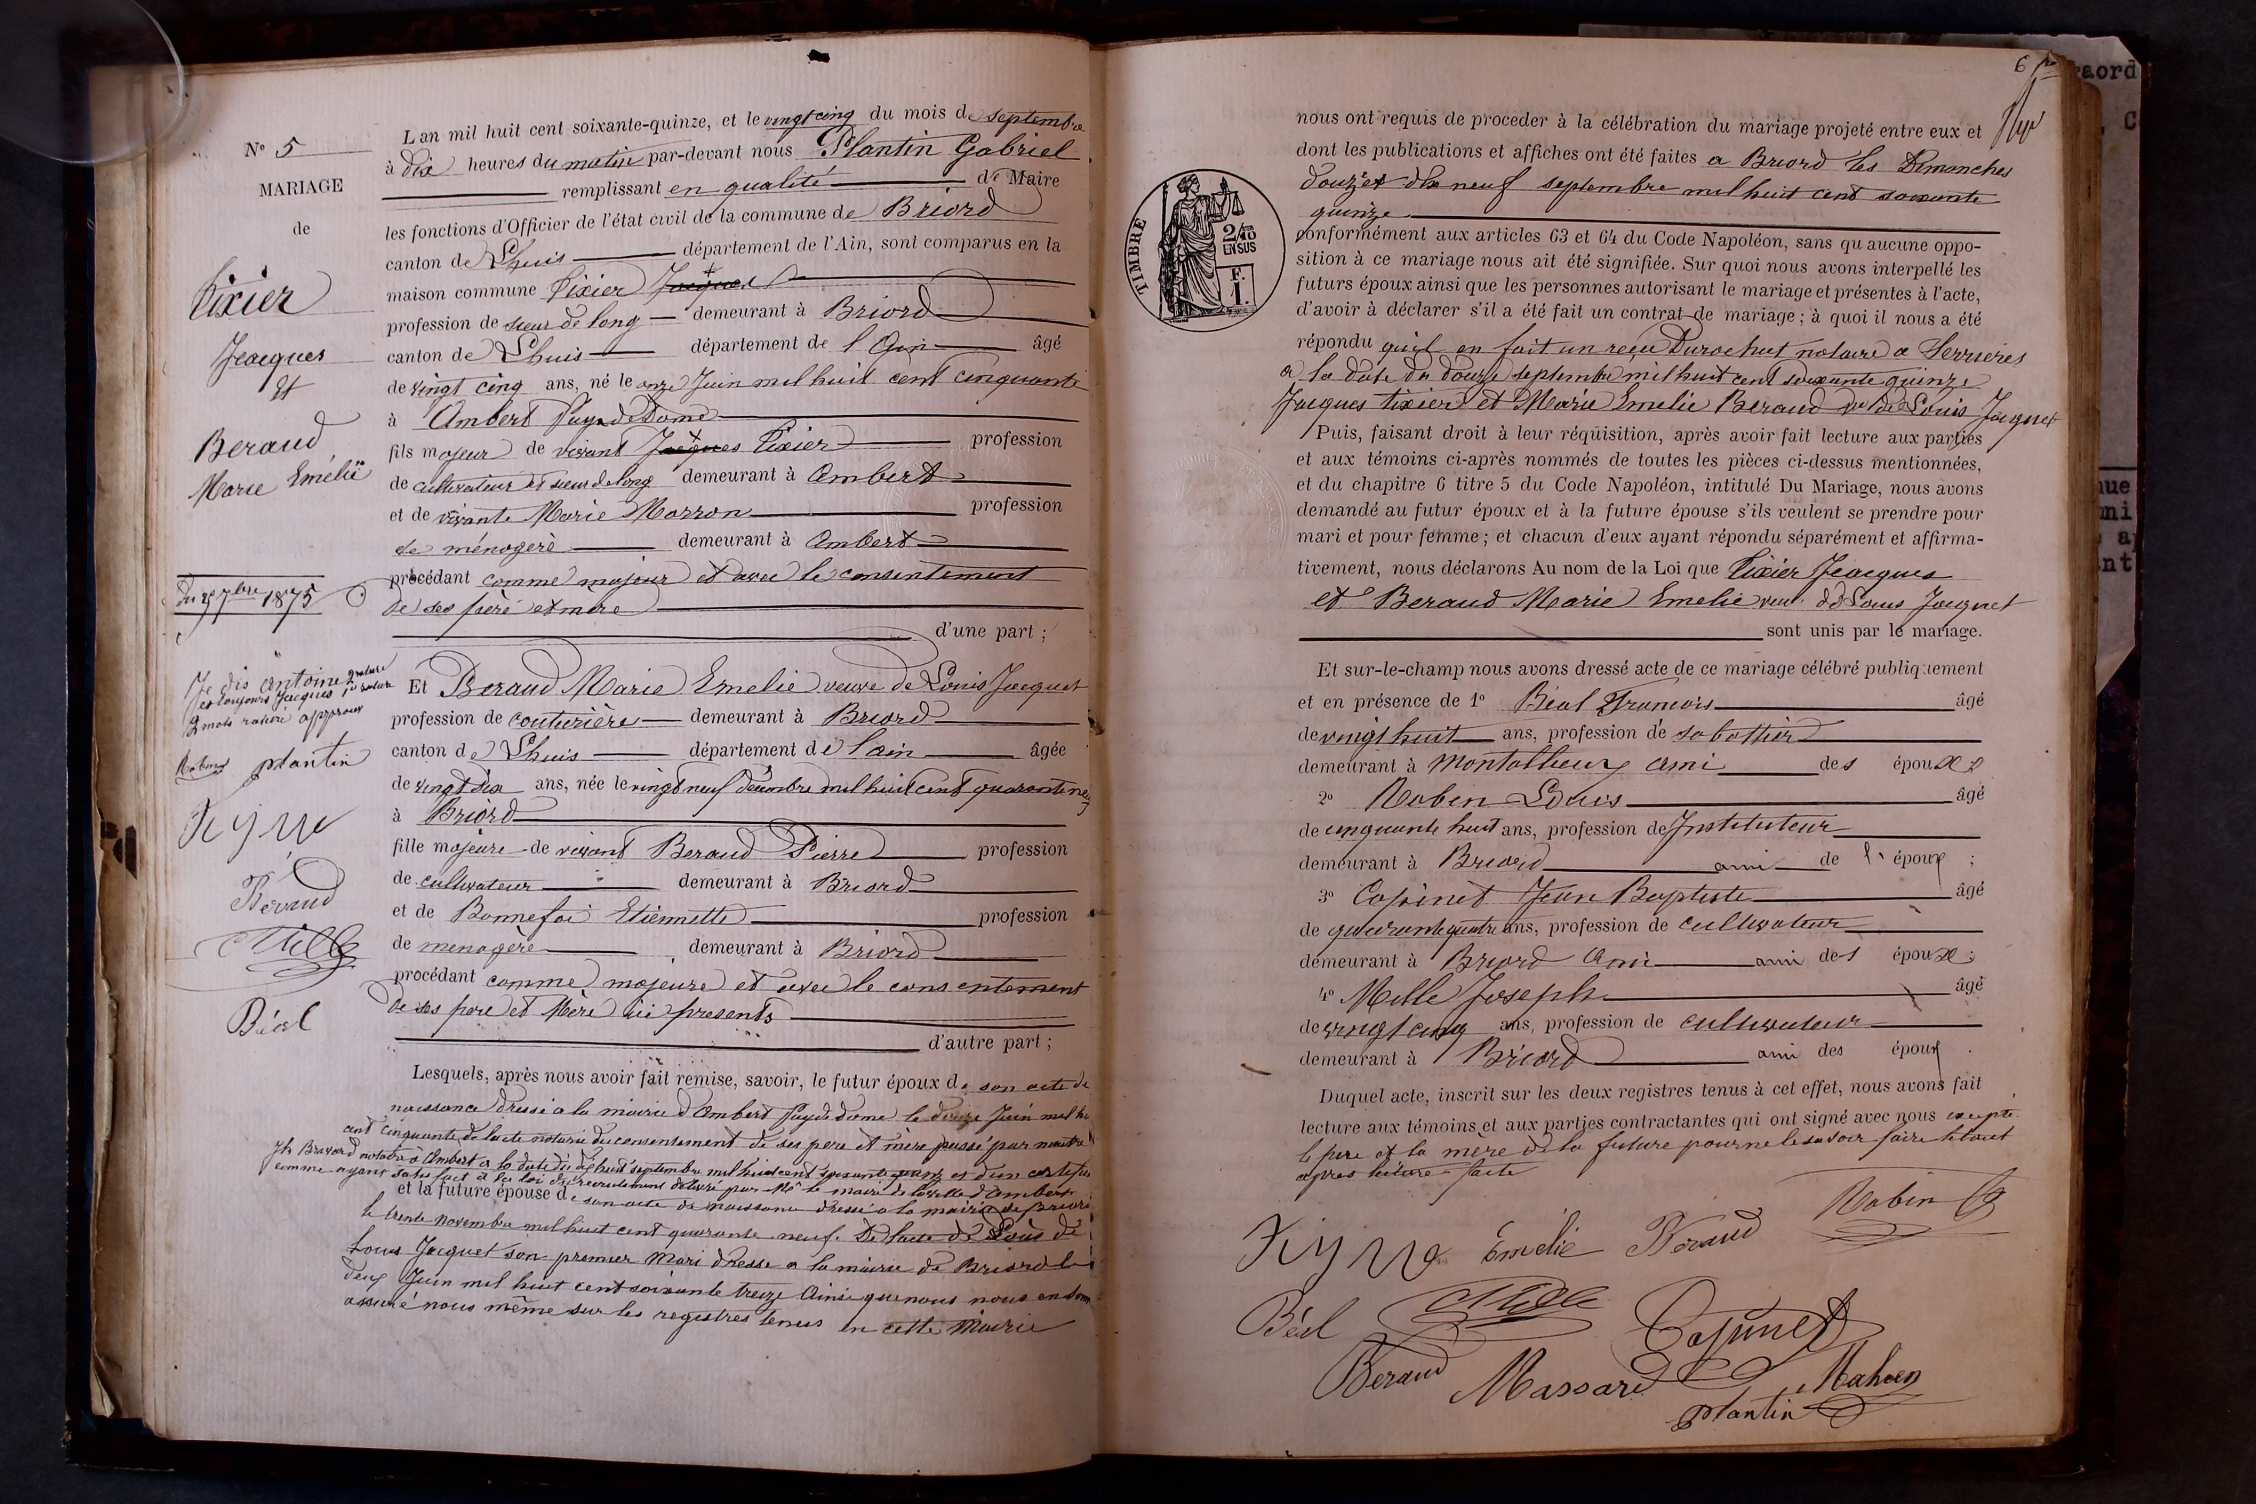 N° 5
MARIAGE
de
Tixier
Jeacques
Et
Beraud
Marie Emélie
du 25 7bre 1875
Je dis Antoine 2 rature
et toujours Jacques 1er rature
2 mots raturé approuvé
Robin Plantin
Beraud
Mille
Béal
L'an mil huit cent soixante-quinze, et le vingt cinq du mois de septembre
à dix heures du matin par-devant nous Plantin Gabriel
remplissant en qualité de Maire
les fonctions d'Officier de l'état civil de la commune de Briord
canton de Lhuis département de l'Ain, sont comparus en la
maison commune Tixier Jacques
profession de sieur de long demeurant à Briord
canton de Lhuis département de l'Ain âgé
de vingt cinq ans, né le onze Juin mil huit cent cinquante
à Ambert Puy de Dome
fils majeur de vivant Jacques Tixier profession
de cultivateur et sieur de long demeurant à Ambert
et de vivante Marie Marron profession
de ménagère demeurant à Ambert
procédant comme majeur et avec le consentement
de ses père et mère
d'une part ;
Et Beraud Marie Emelie veuve de Louis Jacquet
profession de couturière demeurant à Briord
canton de Lhuis département de l'ain âgée
de vingt six ans, née le vingt neuf décembre mil huit cent quarante neuf
à Briord
fille majeure de vivant Beraud Pierre profession
de cultivateur demeurant à Briord
et de Bonnefoi Etiennette profession
de menagère demeurant à Briord
procédant comme majeure et avec le consentement
de ses pere et Mère ici presents
d'autre part ;
Lesquels, après nous avoir fait remise, savoir, le futur époux de son acte de
naissance dressé a la mairie d'Ambert Puy de dome le douze Juin mil hu
cent cinquante, de lacte notarié du consentement de ses pere et mère passé par maitre
Jh Bravard notaire a Ambert a la date du dix huit septembre mil huit cent soixante quinze et d'un certificat
comme ayant satisfait à la loi du recrutement délivré par Mr le maire de la ville d'Ambert
et la future épouse de son acte de naissance dressé a la mairie de Briord
le trente novembre mil huit cent quarante neuf. De lacte de Décès de
Louis Jacquet son premier Mari dressé a la mairie de Briord le
deux Juin mil huit cent soixante treize Ainsi que nous nous en som
assuré nous même sur les registres tenus en cette Mairie
6
TIMBRE
2/10 EN SUS
F. 1.
nous ont requis de procéder à la célébration du mariage projeté entre eux et
dont les publications et affiches ont été faites a Briord les Dimanches
douze et dix neuf septembre mil huit cent soixante
quinze
conformément aux articles 63 et 64 du Code Napoléon, sans qu'aucune oppo-
sition à ce mariage nous ait été signifiée. Sur quoi nous avons interpellé les
futurs époux ainsi que les personnes autorisant le mariage et présentes à l'acte,
d'avoir à déclarer s'il a été fait un contrat de mariage ; à quoi il nous a été
répondu qu'il en fait un reçu Durochat notaire a Serrieres
a la date du douze septembre mil huit cent soixante quinze
Jacques Tixier et Marie Emelie Beraud ve de Louis Jacquet
Puis, faisant droit à leur réquisition, après avoir fait lecture aux parties
et aux témoins ci-après nommés de toutes les pièces ci-dessus mentionnées,
et du chapitre 6 titre 5 du Code Napoléon, intitulé Du Mariage, nous avons
demandé au futur époux et à la future épouse s'ils veulent se prendre pour
mari et pour femme ; et chacun d'eux ayant répondu séparément et affirma-
tivement, nous déclarons Au nom de la Loi que Tixier Jeacques
et Beraud Marie Emelie veuve de Louis Jacquet
sont unis par le mariage.
Et sur-le-champ nous avons dressé acte de ce mariage célébré publiquement
et en présence de 1° Béal François âgé
de vingt huit ans, profession de sabottier
demeurant à Montallieux ami des époux
2° Robin Louis âgé
de cinquante huit ans, profession de Instituteur
demeurant à Briord ami de l' époux ;
3° Capinet Jean Baptiste âgé
de quarante quatre ans, profession de cultivateur
demeurant à Briord Ami ami des époux ;
4° Mille Joseph âgé
de vingt cinq ans, profession de cultivateur
demeurant à Briord ami des époux .
Duquel acte, inscrit sur les deux registres tenus à cet effet, nous avons fait
lecture aux témoins et aux parties contractantes qui ont signé avec nous excepté
le pere et la mère de la future pour ne le savoir faire le tout
apres lecture faite
Emélie Beraud Robin
Béal Mille Capinet
Beraud Massard
Plantin